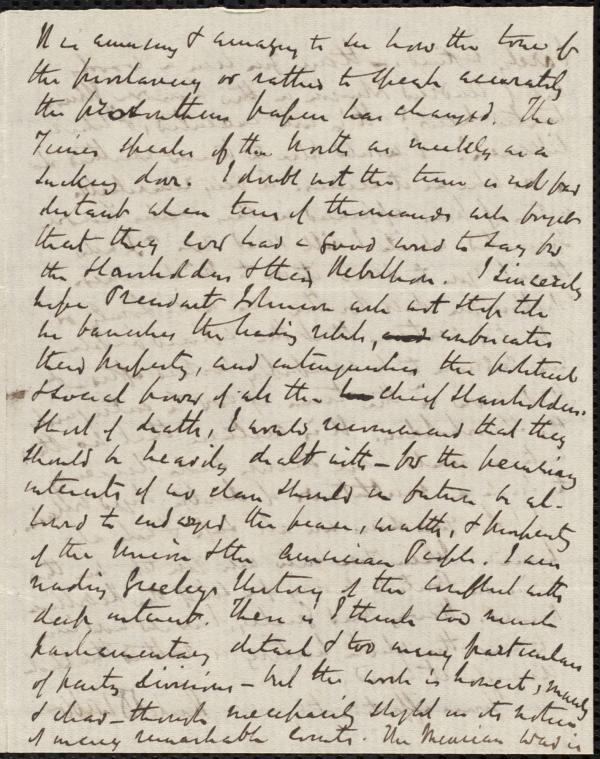 It is amusing & amazing to see how the tone of
the proslavery or rather to speak accurately
the pro Southern papers has changed. The
Times speaks of the North as meekly as a
sucking dove. I doubt not the time is not far
distant when tens of thousands will forget
that they ever had a good word to say for
the Slaveholders & their Rebellion. I sincerely
hope President Johnson will not stop till
he banishes the leading rebels, and confiscates
their property, and extinguishes the political
& social power of all the chief Slaveholders.
Short of death, I would recommend that they
should be heavily dealt with – for the pecuniary
interests of no class should in future be al-
lowed to endanger the peace, wealth, & prosperity
of the Union & the American People. I am
reading Greeley's History of the conflict with
deep interest. There is I think too much
parliamentary detail & too many particulars
of party divisions – but the work is honest, manly
& clear – though necessarily slight in its notice
of many remarkable events. The Mexican War is